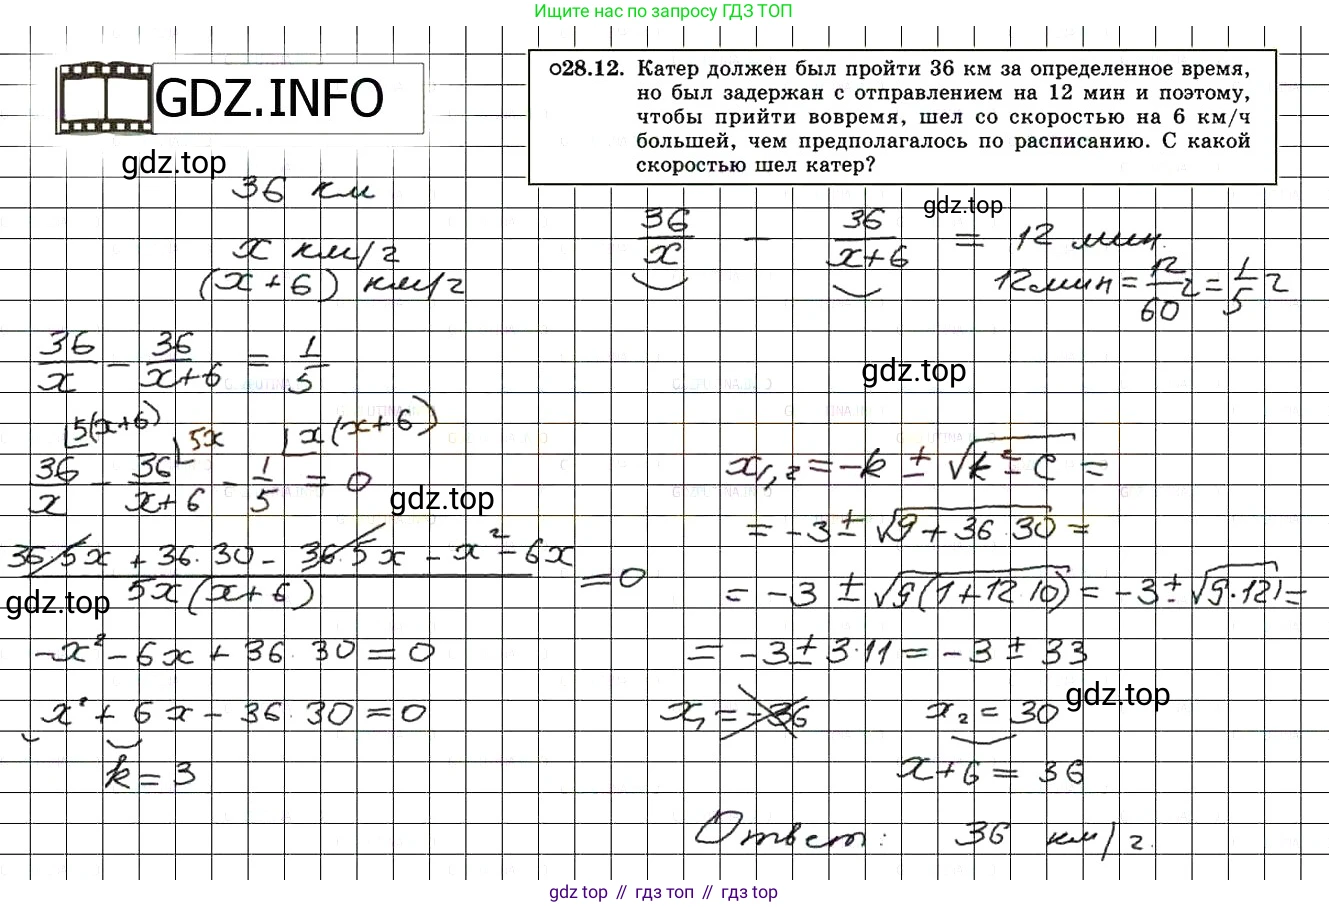 Ищите нас по запросу ГДЗ ТОП
GDZ.INFO
gdz.top
○28.12. Катер должен был пройти 36 км за определенное время,
но был задержан с отправлением на 12 мин и поэтому,
чтобы прийти вовремя, шел со скоростью на 6 км/ч
большей, чем предполагалось по расписанию. С какой
скоростью шел катер?
36 км
x км/ч
(x+6) км/ч
gdz.top
36/x - 36/(x+6) = 12 мин.
12 мин = 12/60 ч = 1/5 ч
36/x - 36/(x+6) = 1/5
gdz.top
5(x+6) 5x x(x+6)
36/x - 36/(x+6) - 1/5 = 0
gdz.top
(36·5x + 36·30 - 36·5x - x² - 6x)/(5x(x+6)) = 0
gdz.top
-x² - 6x + 36·30 = 0
x² + 6x - 36·30 = 0
k = 3
x₁,₂ = -k ± √(k² - c) =
= -3 ± √(9 + 36·30) =
= -3 ± √(9(1+12·10)) = -3 ± √(9·121) =
= -3 ± 3·11 = -3 ± 33
gdz.top
x₁ = -36 x₂ = 30
x+6 = 36
Ответ: 36 км/ч.
gdz top // гдз топ // гдз top